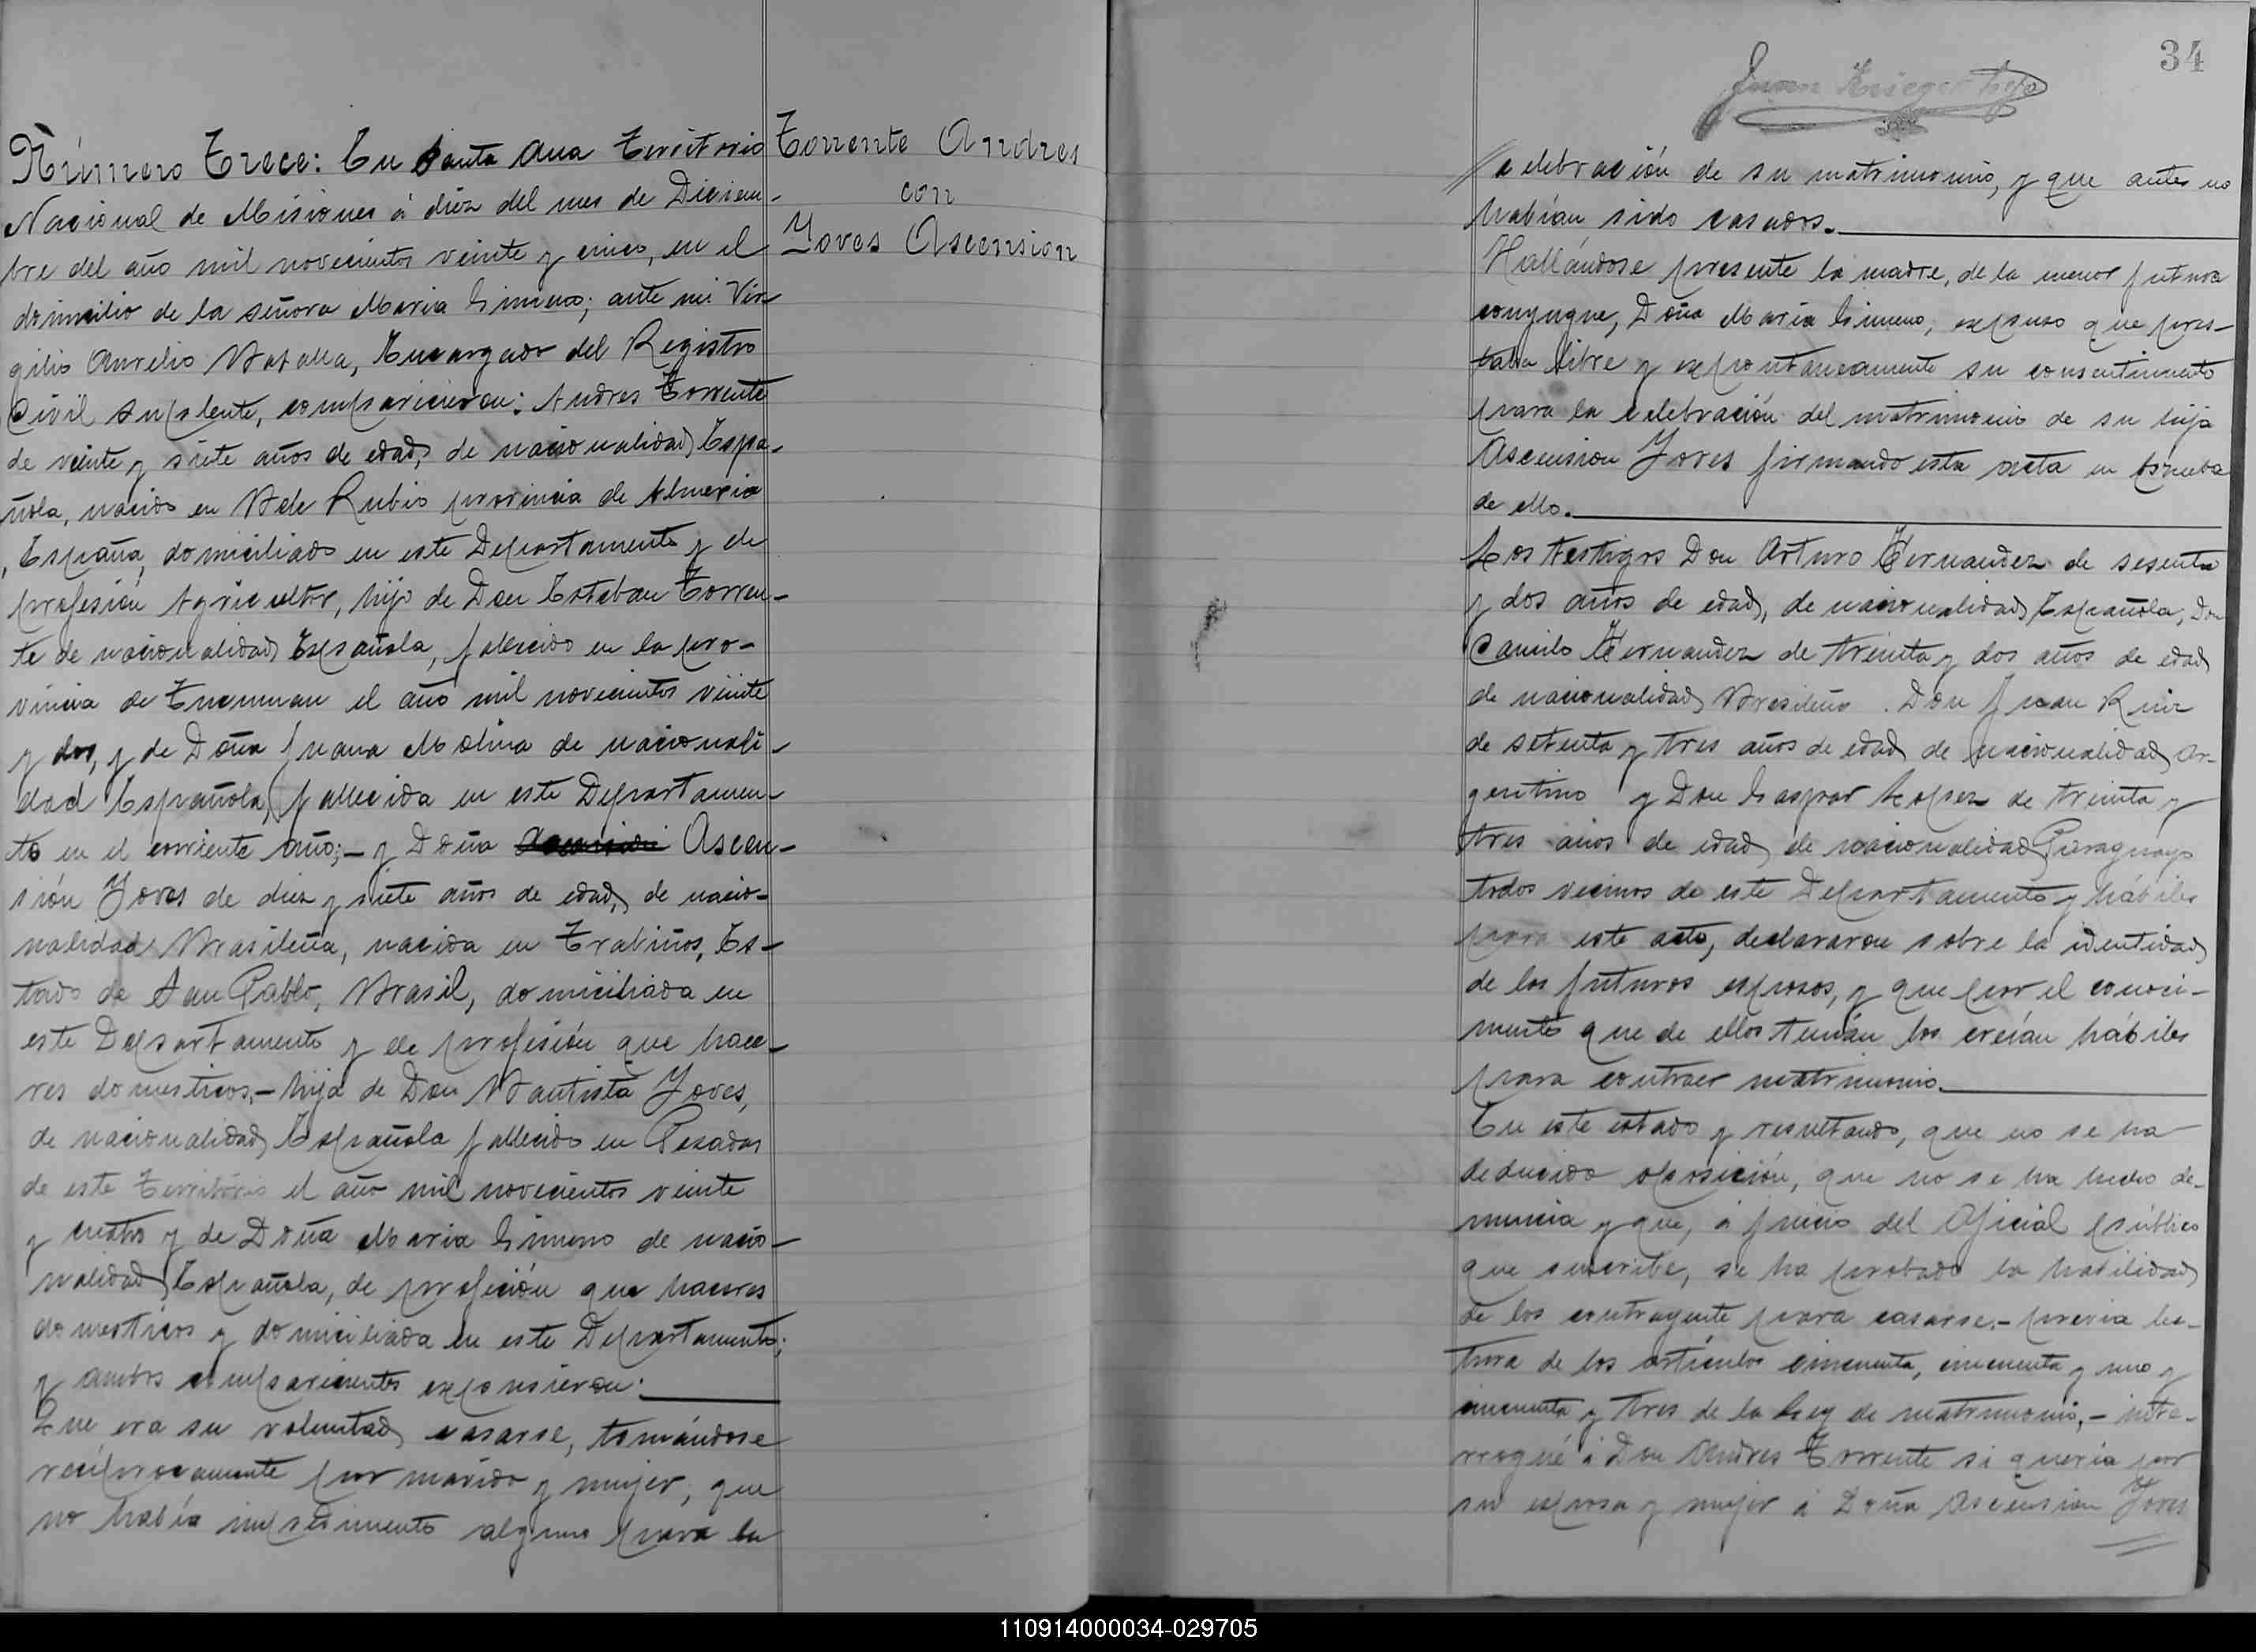 Número Trece: En Santa Ana Territorio
Nacional de Misiones á diez del mes de Diciem-
bre del año mil novecientos veinte y cinco, en el
domicilio de la señora Maria Gimeno; ante mi Vir-
gilio Aurelio Batalla, Encargado del Registro
Civil Suplente, comparicieron: Andres Torrente
de veinte y siete años de edad, de nacionalidad Espa-
ñola, nacido en B de Rubio provincia de Almeria
, España, domiciliado en este Departamento y de
profesión Agricultor, hijo de Don Esteban Torren-
te de nacionalidad Española, fallecido en la pro-
vincia de Tucuman el año mil novecientos veinte
y dos, y de Doña Juana Molina de nacionali-
dad Española, fallecida en este Departamen-
to en el corriente año;- y Doña Ascen-
sión Joves de diez y siete años de edad, de nacio-
nalidad Brasileña, nacida en Trabiños, Es-
tado de San Pablo, Brasil, domiciliada en
este Departamento y de profesión que hace-
res domesticos,- hija de Don Bautista Joves,
de nacionalidad Española fallecido en Posadas
de este Territorio el año mil novecientos veinte
y cuatro y de Doña Maria Gimeno de nacio-
nalidad Española, de profeción que haceres
domesticos y domiciliada en este Departamento;
y ambos comparicientes expusieron:
Que era su voluntad casarse, tomándose
recíprocamente por marido y mujer, que
no había impedimento alguno para la
Torrente Andres
con
Joves Ascension
34
Juan Krieger hijo
// celebración de su matrimonio, y que antes no
habían sido casados.
Hallándose presente la madre, de la menor futura
conyugue, Doña Maria Gimeno, expuso que pres-
taba libre y expontaneamente su consentimiento
para la celebración del matrimonio de su hija
Ascension Joves firmando esta acta en prueba
de ello.
Los testigos Don Arturo Fernandez de sesenta
y dos años de edad, de nacionalidad Española, Don
Camilo Fernandez de treinta y dos años de edad
de nacionalidad Brasileño. Don Juan Ruiz
de setenta y tres años de edad de nacionalidad Ar-
gentino y Don Gaspar Lopez de treinta y
tres años de edad de nacionalidad Paraguayo
todos vecinos de este Departamento y hábiles
para este acto, declararon sobre la identidad
de los futuros esposos, y que por el conoci-
miento que de ellos tenían los creían hábiles
para contraer matrimonio.
En este estado y resultando, que no se ha
deducido oposición, que no se ha hecho de-
nuncia y que, á juicio del Oficial público
que suscribe, se ha probado la habilidad
de los contrayente para casarse,- previa lec-
tura de los artículos cincuenta, cincuenta y uno y
cincuenta y tres de la Ley de matrimonio,- inte-
rrogué á Don Andres Torrente si quería por
su esposa y mujer á Doña Ascension Joves
110914000034-029705